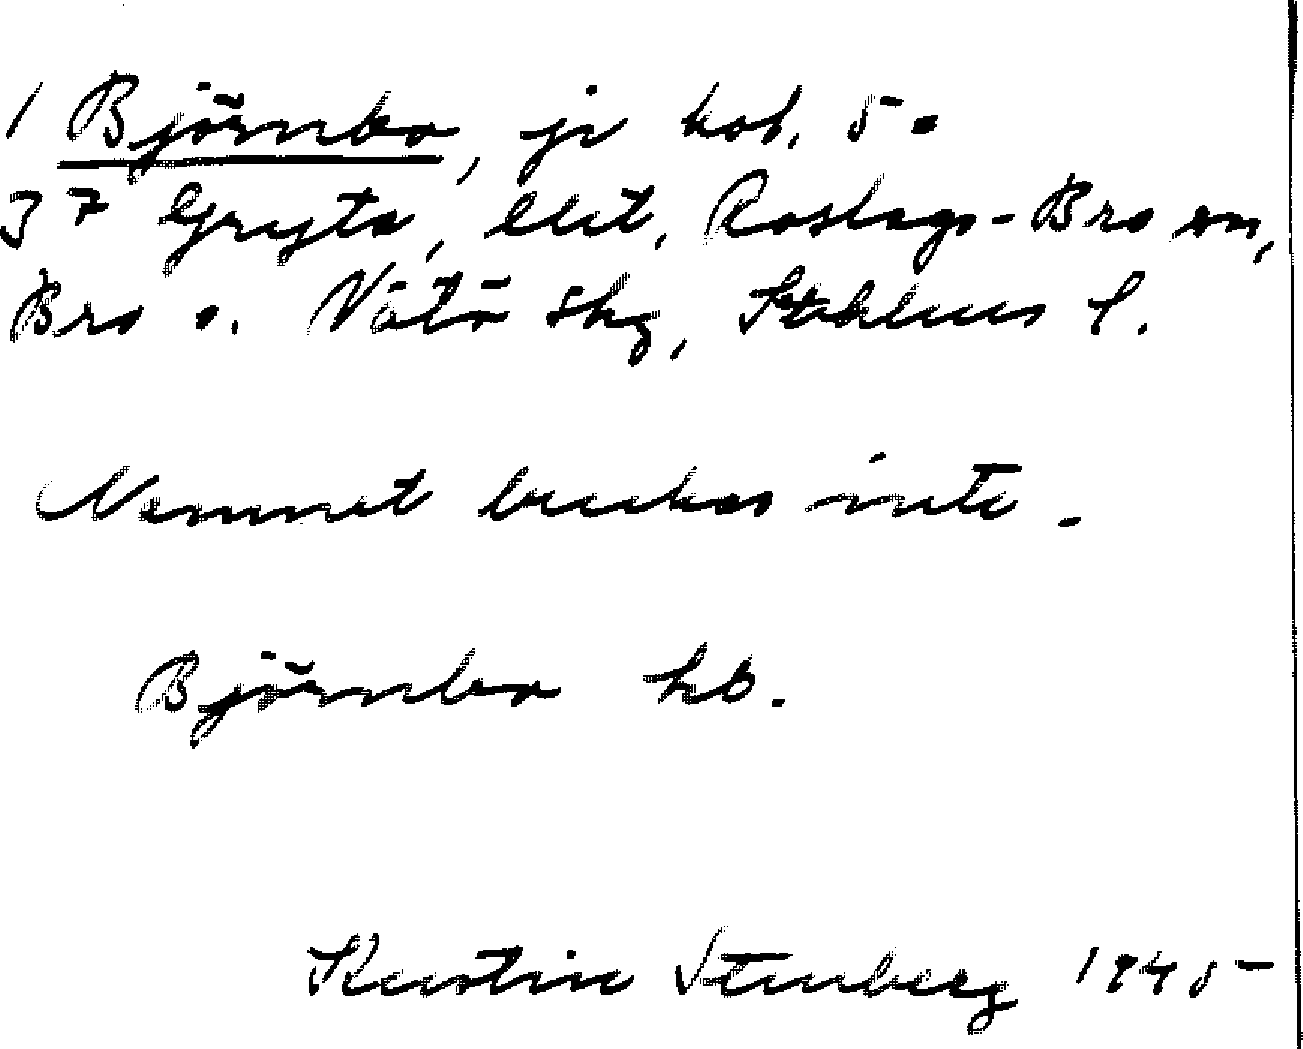 1 Björnbo, jr kat. 5 =
37 Gryta, Elit, Roslags-Bro sn,
Bro o. Vätö skg, Sthlms l.
Namnet brukas inte.
Björnbo hb.
Kerstin Stenberg 1945